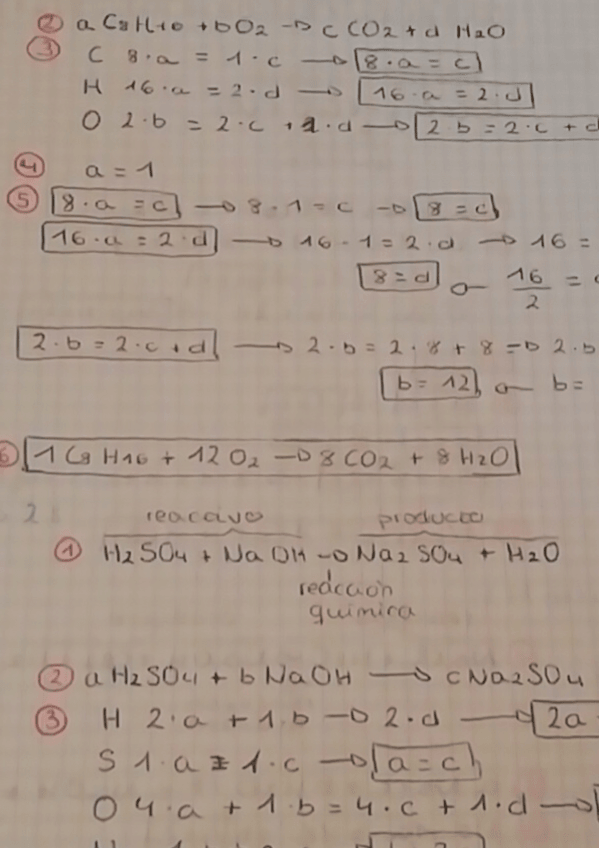 ② a C8H16 + bO2 → c CO2 + d H2O
③ C 8·a = 1·c → 8·a = c
H 16·a = 2·d → 16·a = 2·d
O 2·b = 2·c + 1·d → 2·b = 2·c + d
④ a = 1
⑤ 8·a = c → 8·1 = c → 8 = c
16·a = 2·d → 16·1 = 2·d → 16 =
8 = d ← 16/2 =
2·b = 2·c + d → 2·b = 2·8 + 8 → 2·b
b = 12 ← b =
⑥ 1 C8H16 + 12 O2 → 8 CO2 + 8 H2O
2
reactivo producto
① H2SO4 + NaOH → Na2SO4 + H2O
reacción
química
② a H2SO4 + b NaOH → c Na2SO4
③ H 2·a + 1·b → 2·d → 2a
S 1·a = 1·c → a = c
O 4·a + 1·b = 4·c + 1·d →